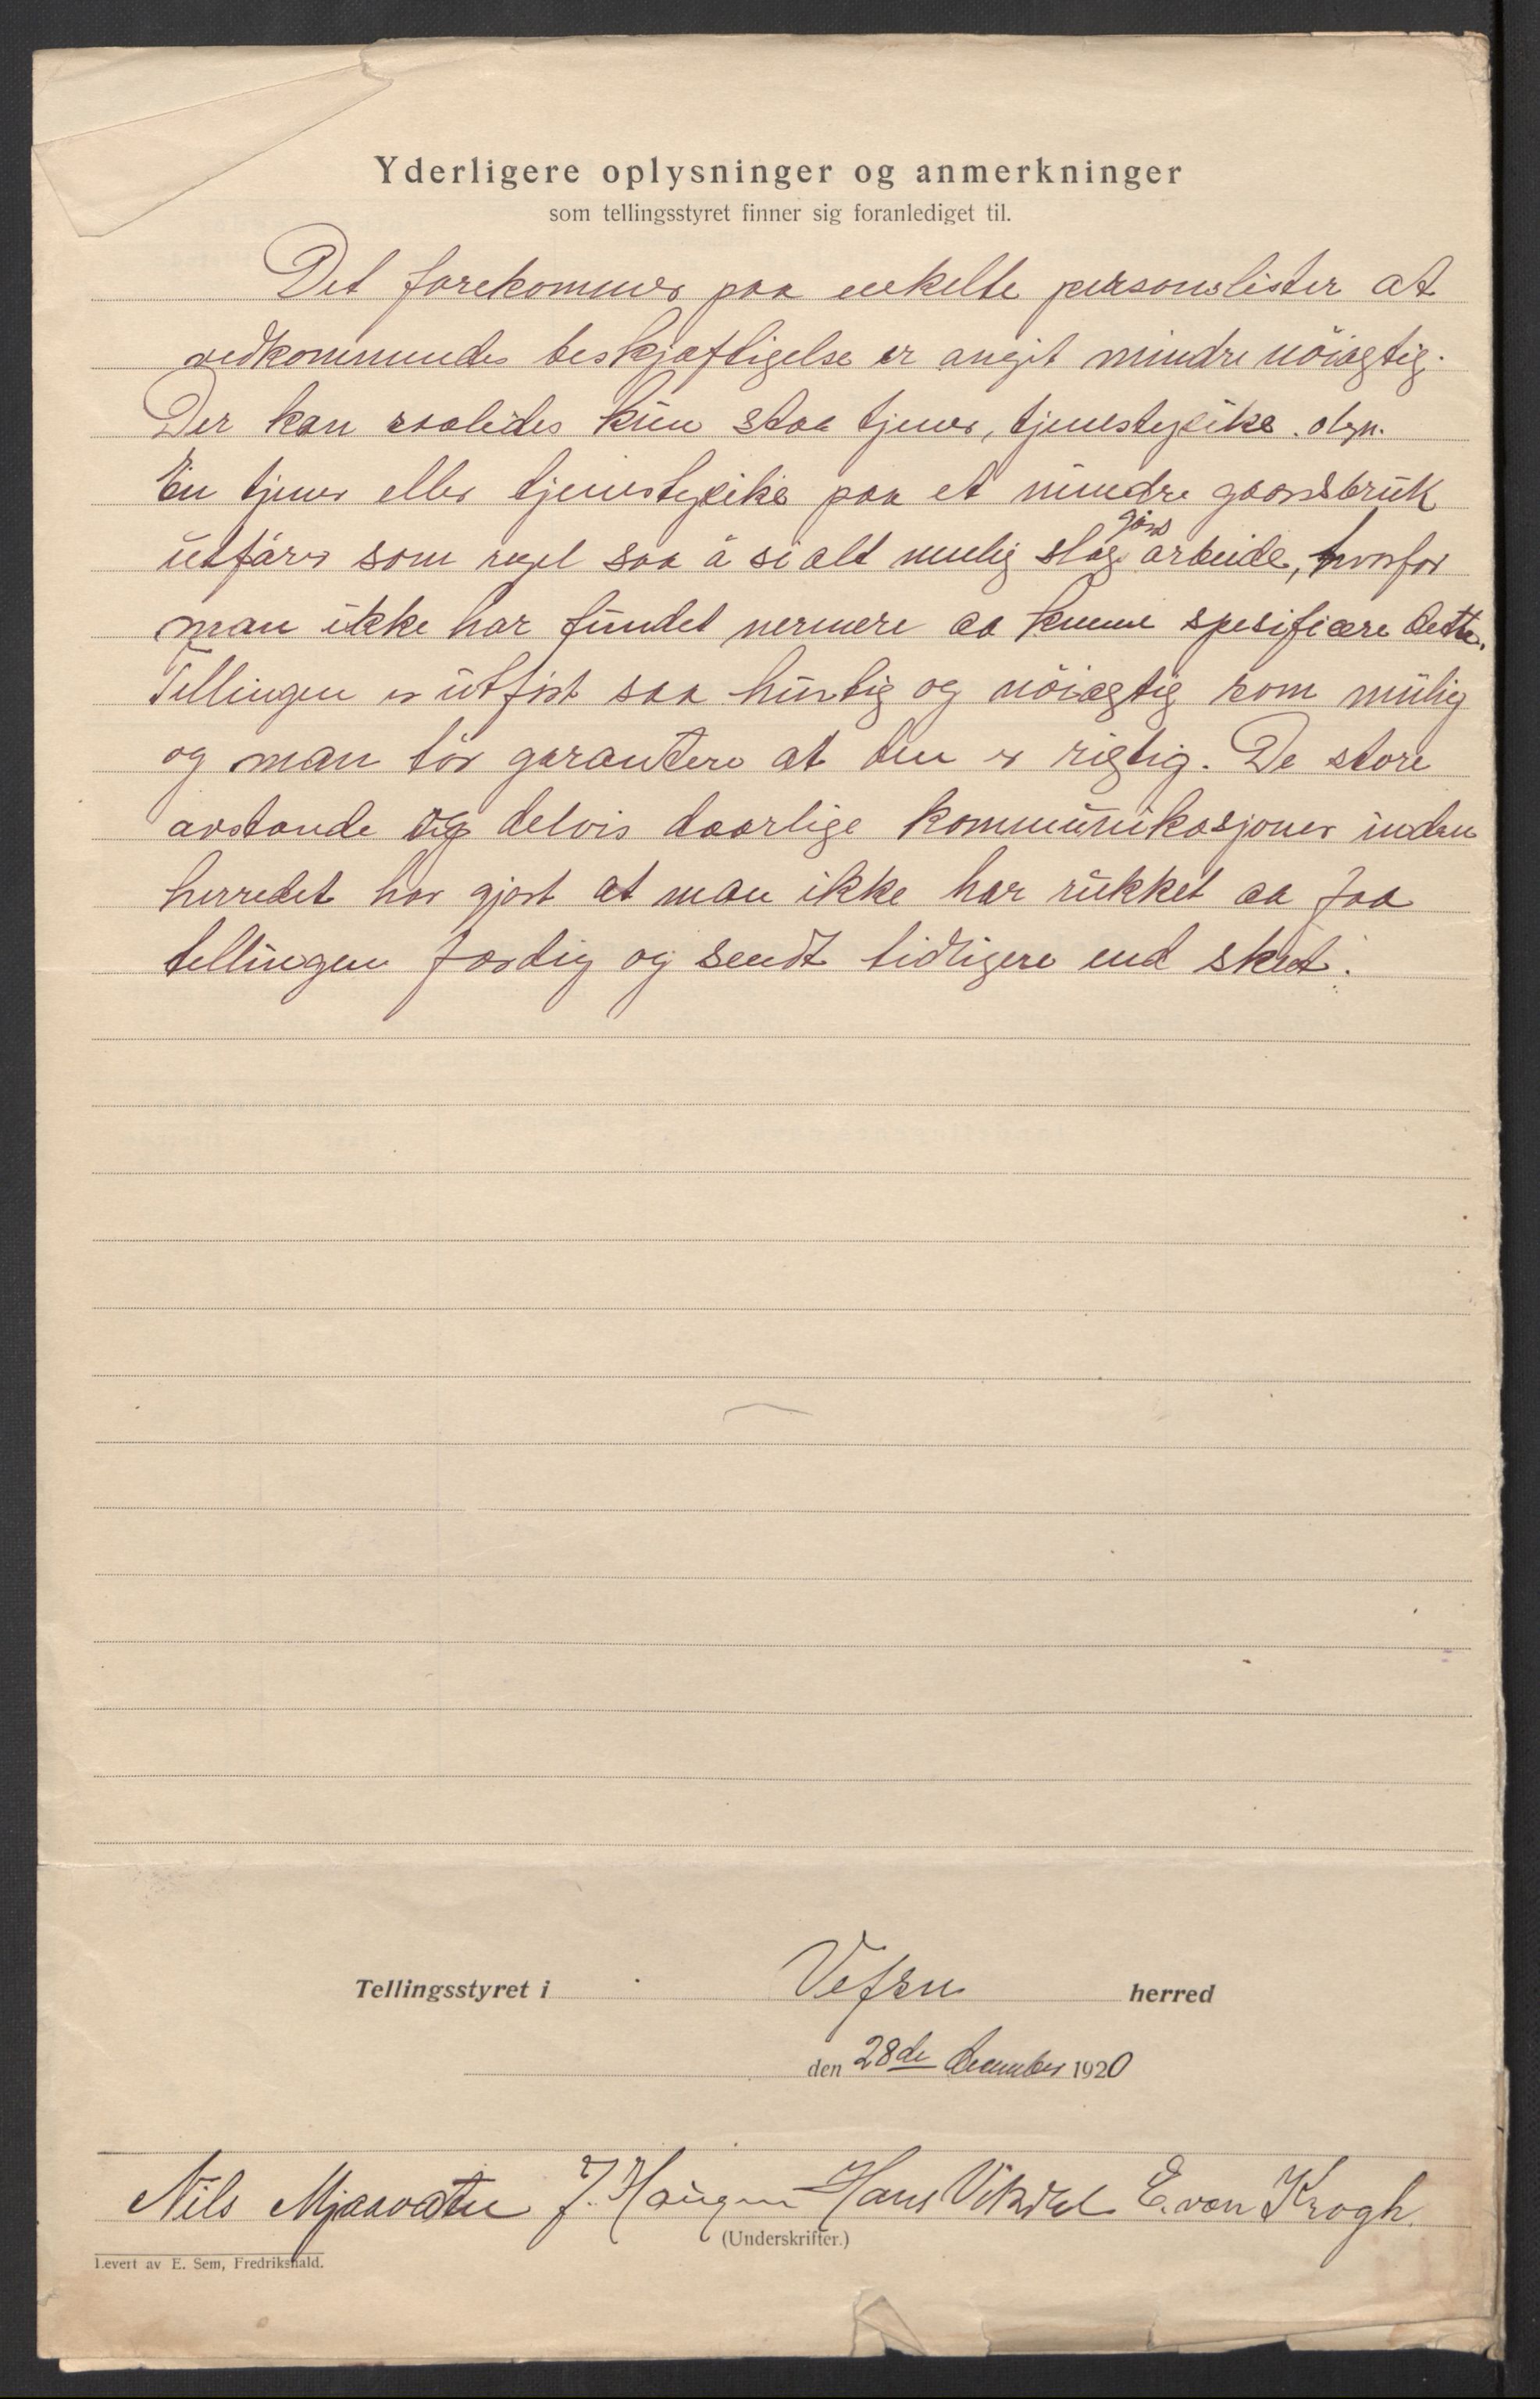 Yderligere oplysninger og anmerkninger
som tellingsstyret finner sig foranlediget til.
Det forekommer paa enkelte personslister at
vedkommendes beskjæftigelse er angit mindre nöiagtig.
Der kan saaledes kun staa tjener, tjenestepike. olgn.
En tjener eller tjenestepike paa et mindre gaardsbruk
utförer som regel saa å si alt mulig slags gårds arbeide, hvorfor
man ikke har fundet nermere aa kunne spesificere dette.
Tellingen er utfört saa hurtig og nöiagtig som mulig
og man tör garantere at den er rigtig. De store
avstande og delvis daarlige kommunikasjoner inden
herredet har gjort at man ikke har rukket aa faa
tellingen færdig og sendt tidligere end skeet.
Tellingsstyret i Vefsn herred
den 28de december 1920
Nils Mjaavatn J. Haugen Hans Vikdal E. von Krogh.
(Underskrifter.)
Levert av E. Sem, Fredrikshald.